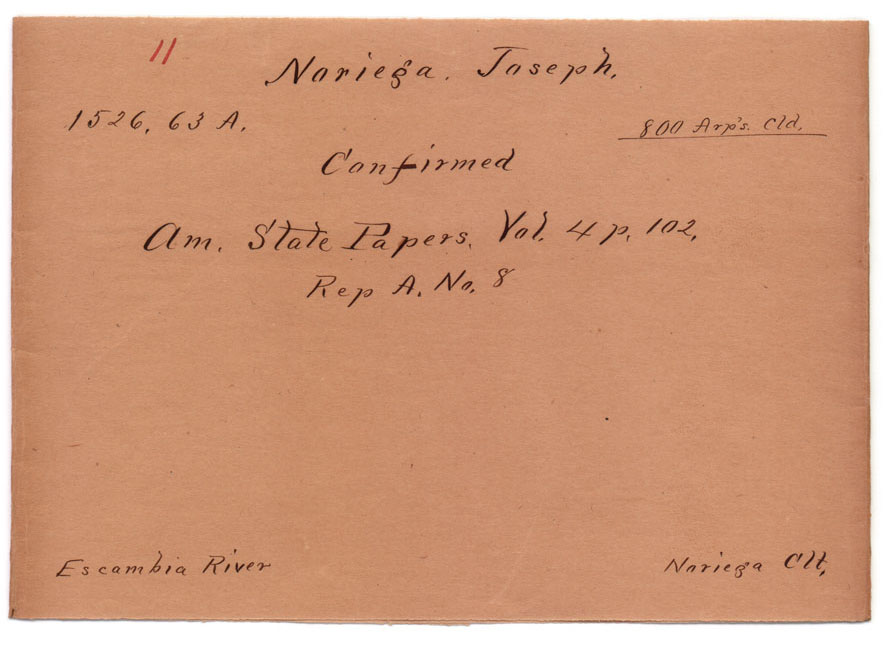 11
Noriega. Joseph.
1526.63 A.
800 Arp's. Cld.
Confirmed
Am. State Papers. Vol. 4 p. 102.
Rep A. No. 8
Escambia River
Noriega Clt.